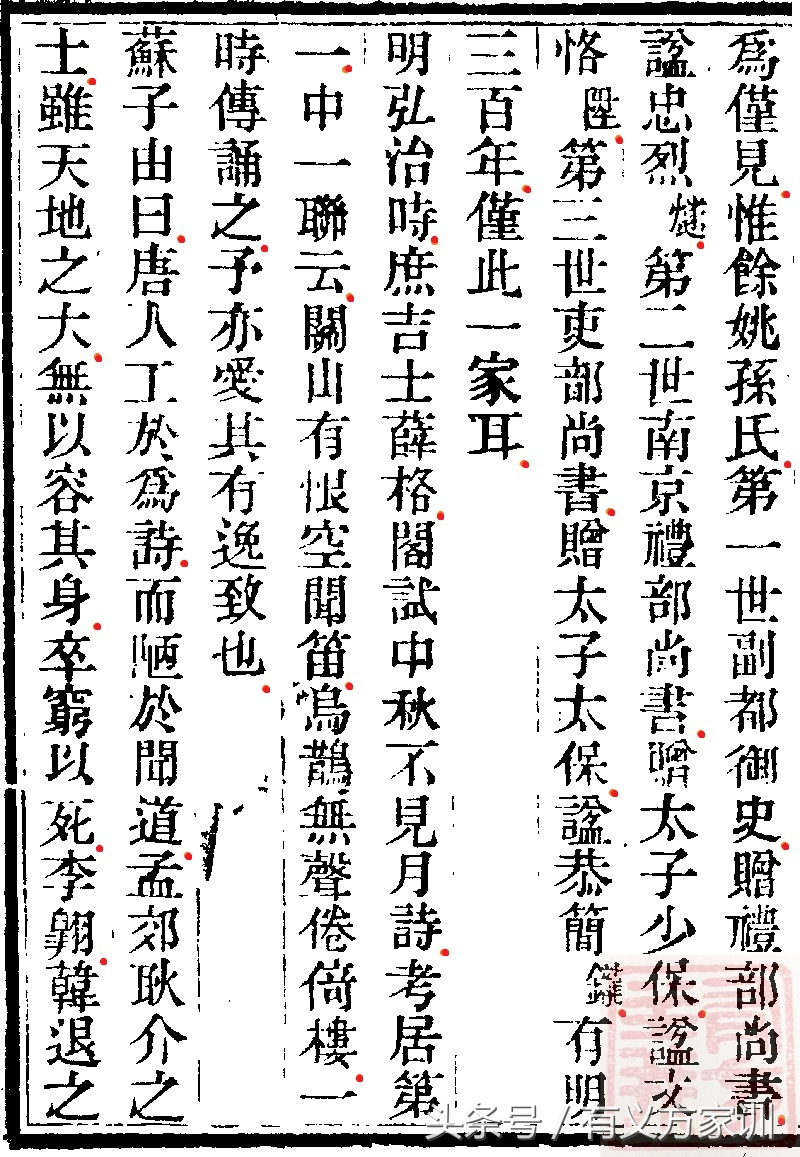 爲僅見惟餘姚孫氏第一世副都御史贈禮部尚書
諡忠烈燧第二世南京禮部尚書贈太子少保諡文
恪陞第三世吏部尚書贈太子太保諡恭簡鑨有明
三百年僅此一家耳
明弘治時庶吉士薛格閣試中秋不見月詩考居第
一中一聯云關山有恨空聞笛烏鵲無聲倦倚樓一
時傳誦之予亦愛其有逸致也
蘇子由曰唐人工於爲詩而陋於聞道孟郊耿介之
士雖天地之大無以容其身卒窮以死李翱韓退之
头条号 / 有义方家训